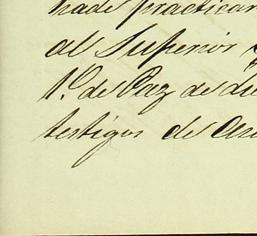 hade practicar
al Superior
1º de Paz de
testigos de